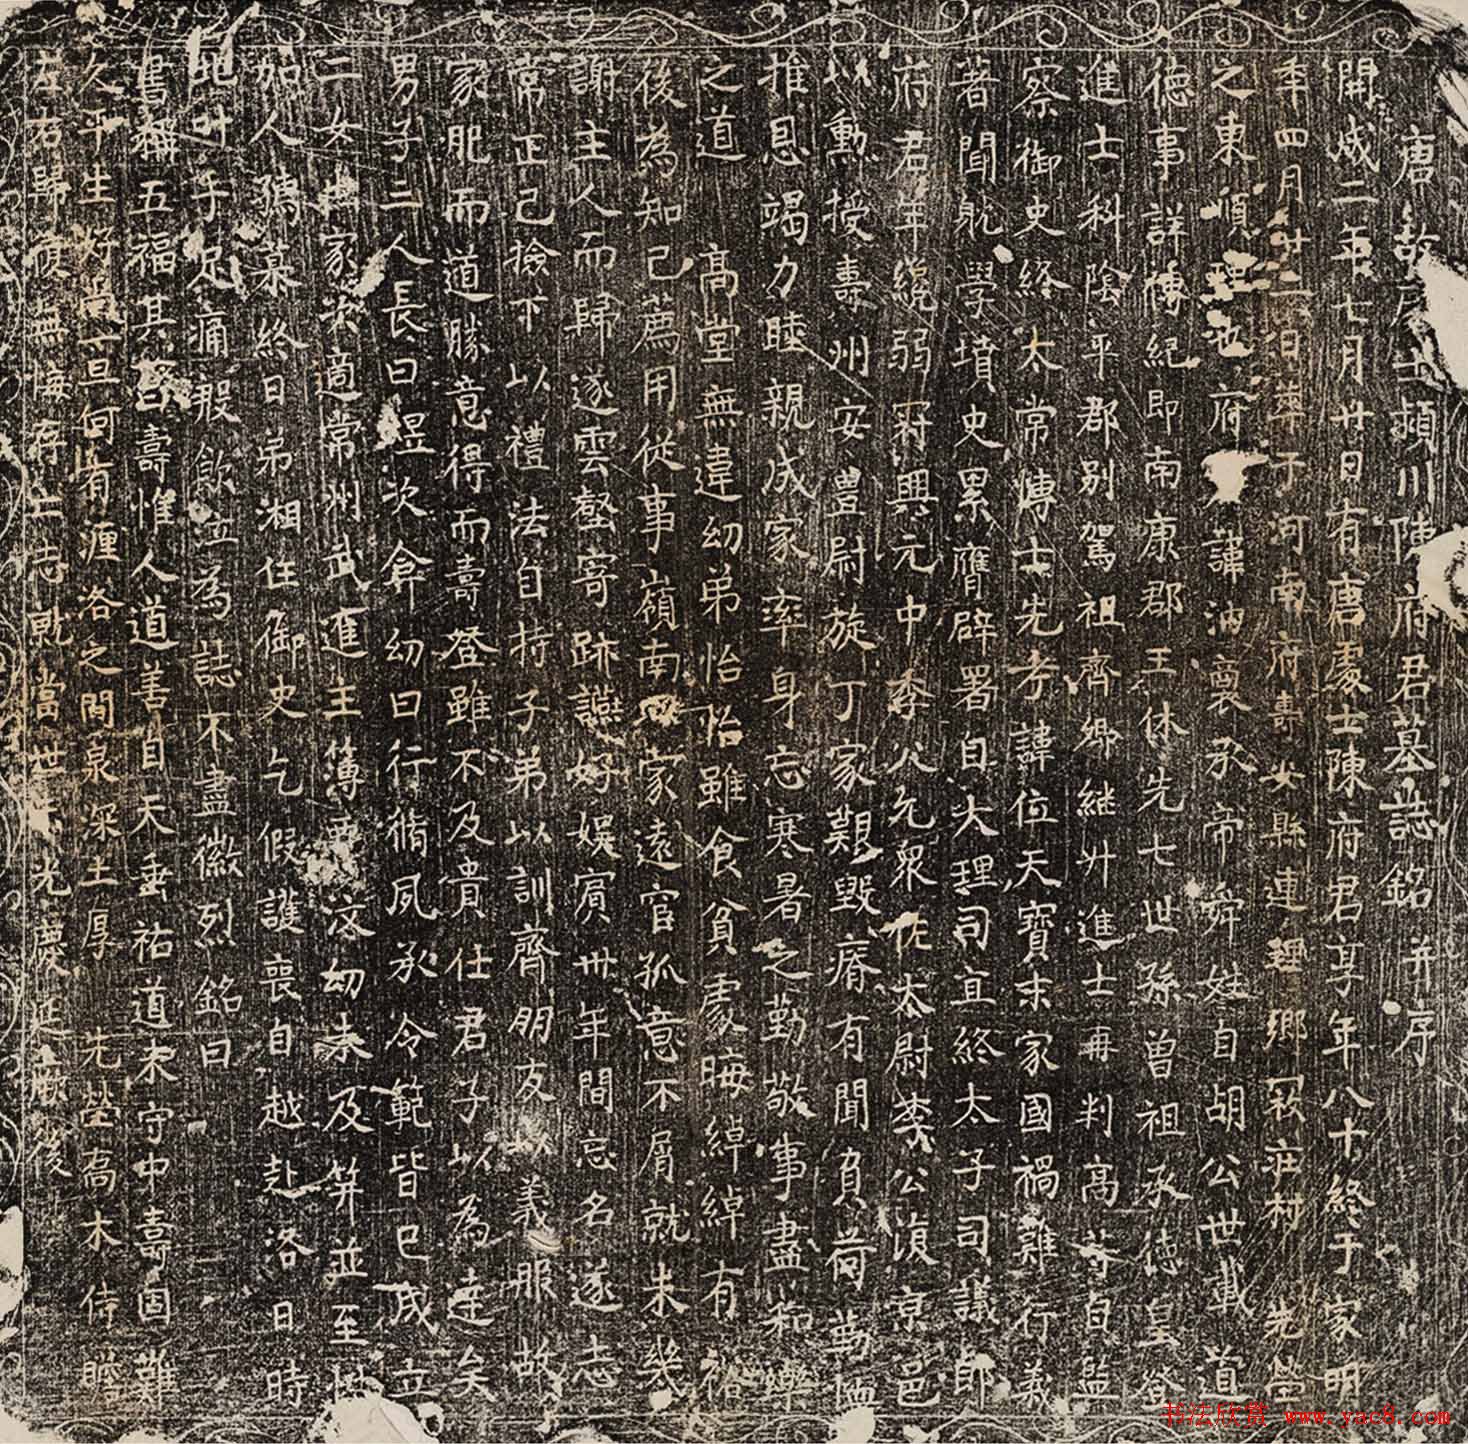 唐故處士潁川陳府君墓誌銘并序
開成二年七月廿日有唐處士陳府君享年八十終于家明
年四月廿三日葬于河南府壽安縣連理鄉秋莊村先塋
之東順理也府君諱汭裔承帝舜姓自胡公世載道
德事詳傳紀即南康郡王休先七世孫曾祖承德皇谷
進士科陰平郡別駕祖齊卿繼升進士再判高等自監
察御史終太常博士先考諱位天寶末家國禍難行義
著聞躭學墳史累膺辟署自大理司直終太子司議郎
府君年纔弱冠興元中李公允眾佐太尉李公復京邑
以勳授壽州安豐尉旋丁家艱毀瘠有聞負荷勤恤
推恩竭力睦親成家率身忘寒暑之勤敬事盡和樂
之道高堂無違幼弟怡怡雖食貧處晦綽綽有裕
後為知己薦用從事嶺南蒙遠官孤意不屑就未幾
謝主人而歸遂雲壑寄跡讌好娛賓卅年間忘名遂志
常正己撿下以禮法自持子弟以訓齊朋友以義服故
家肥而道勝意得而壽登雖不及貴仕君子以為達矣
男子三人長曰昱次弇幼曰行脩夙承令範皆已成立
二女出家次適常州武進主簿次幼未及笄並至性
如人孺慕終日弟湘任御史乞假護喪自越赴洛日時
號叫手足痛毀飲泣為誌不盡徽烈銘曰
書稱五福其一曰壽惟人道善自天垂祐道未守中壽固難
久平生好尚一旦何有瀍洛之間泉深土厚先塋喬木侍瞻
左右歸復無悔存亡志就當世光慶延厥後
书法欣赏 www.yac8.com